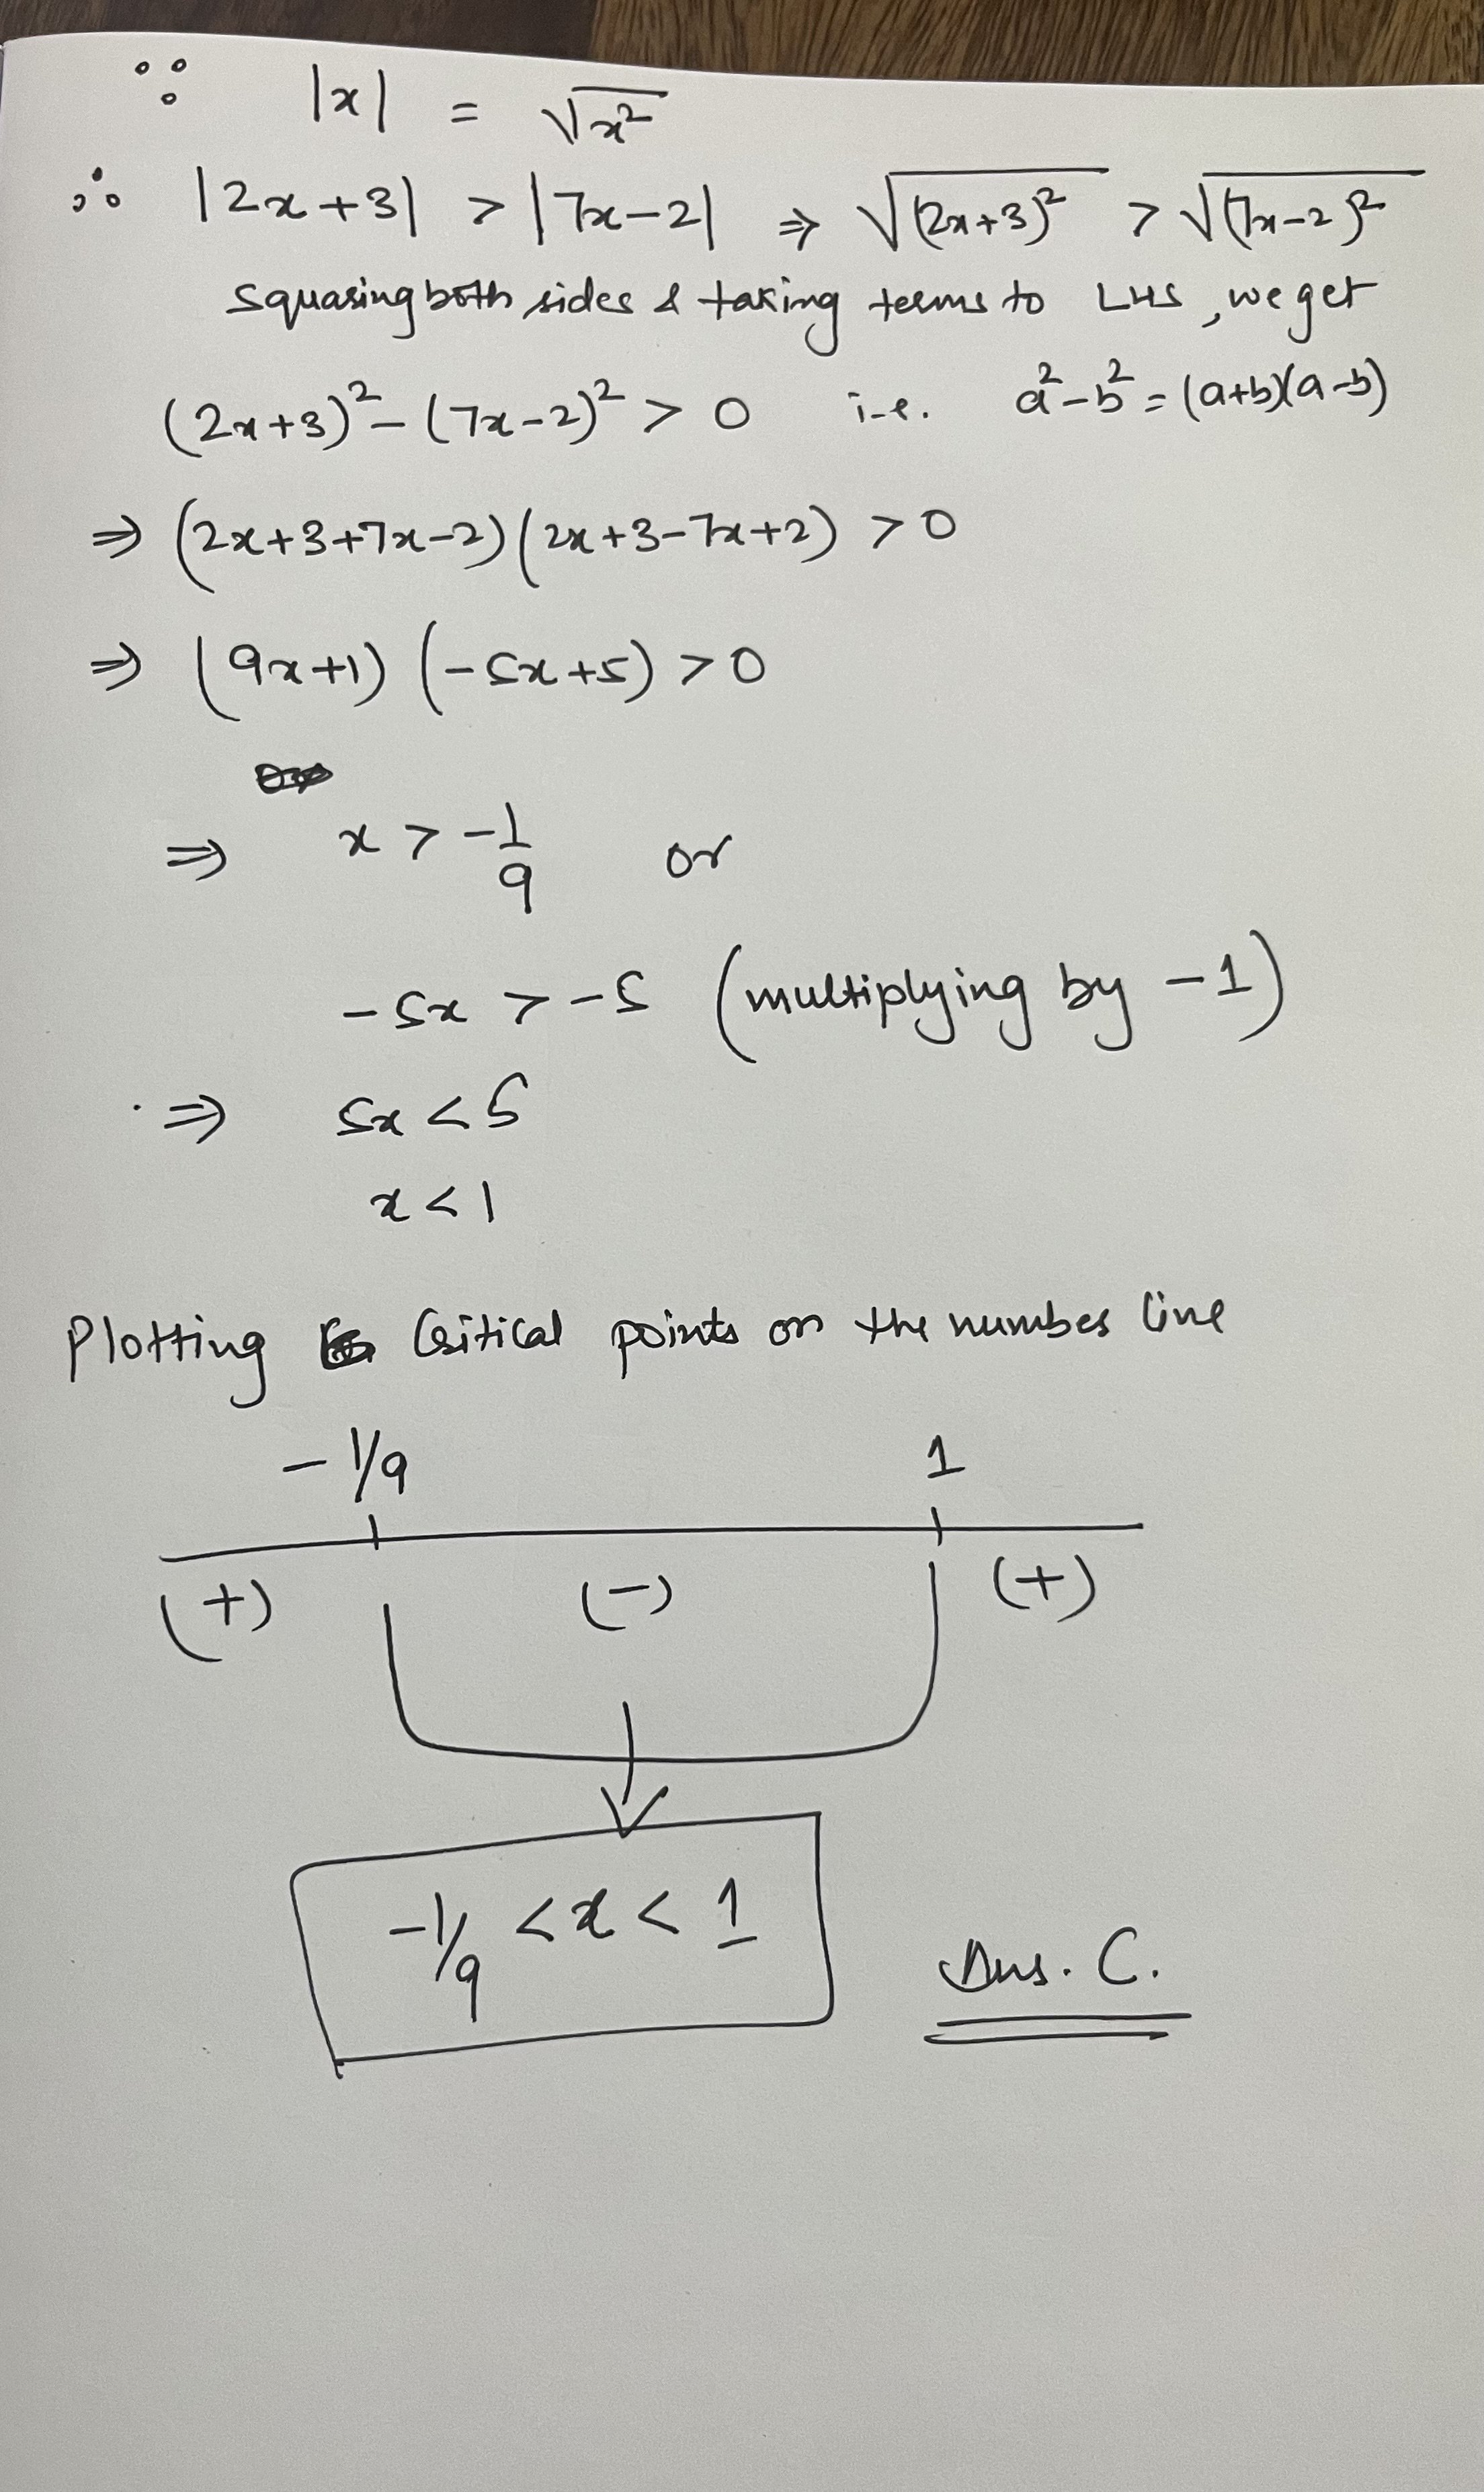 ∵ |x| = √x²
∴ |2x+3| > |7x-2| ⇒ √(2x+3)² > √(7x-2)²
Squaring both sides & taking terms to LHS, we get
(2x+3)² - (7x-2)² > 0 i.e. a²-b² = (a+b)(a-b)
⇒ (2x+3+7x-2)(2x+3-7x+2) > 0
⇒ (9x+1) (-5x+5) > 0
⇒ x > -1/9 or
-5x > -5 (multiplying by -1)
⇒ 5x < 5
x < 1
Plotting Critical points on the number line
-1/9 1
(+) (-) (+)
-1/9 < x < 1
Ans. C.